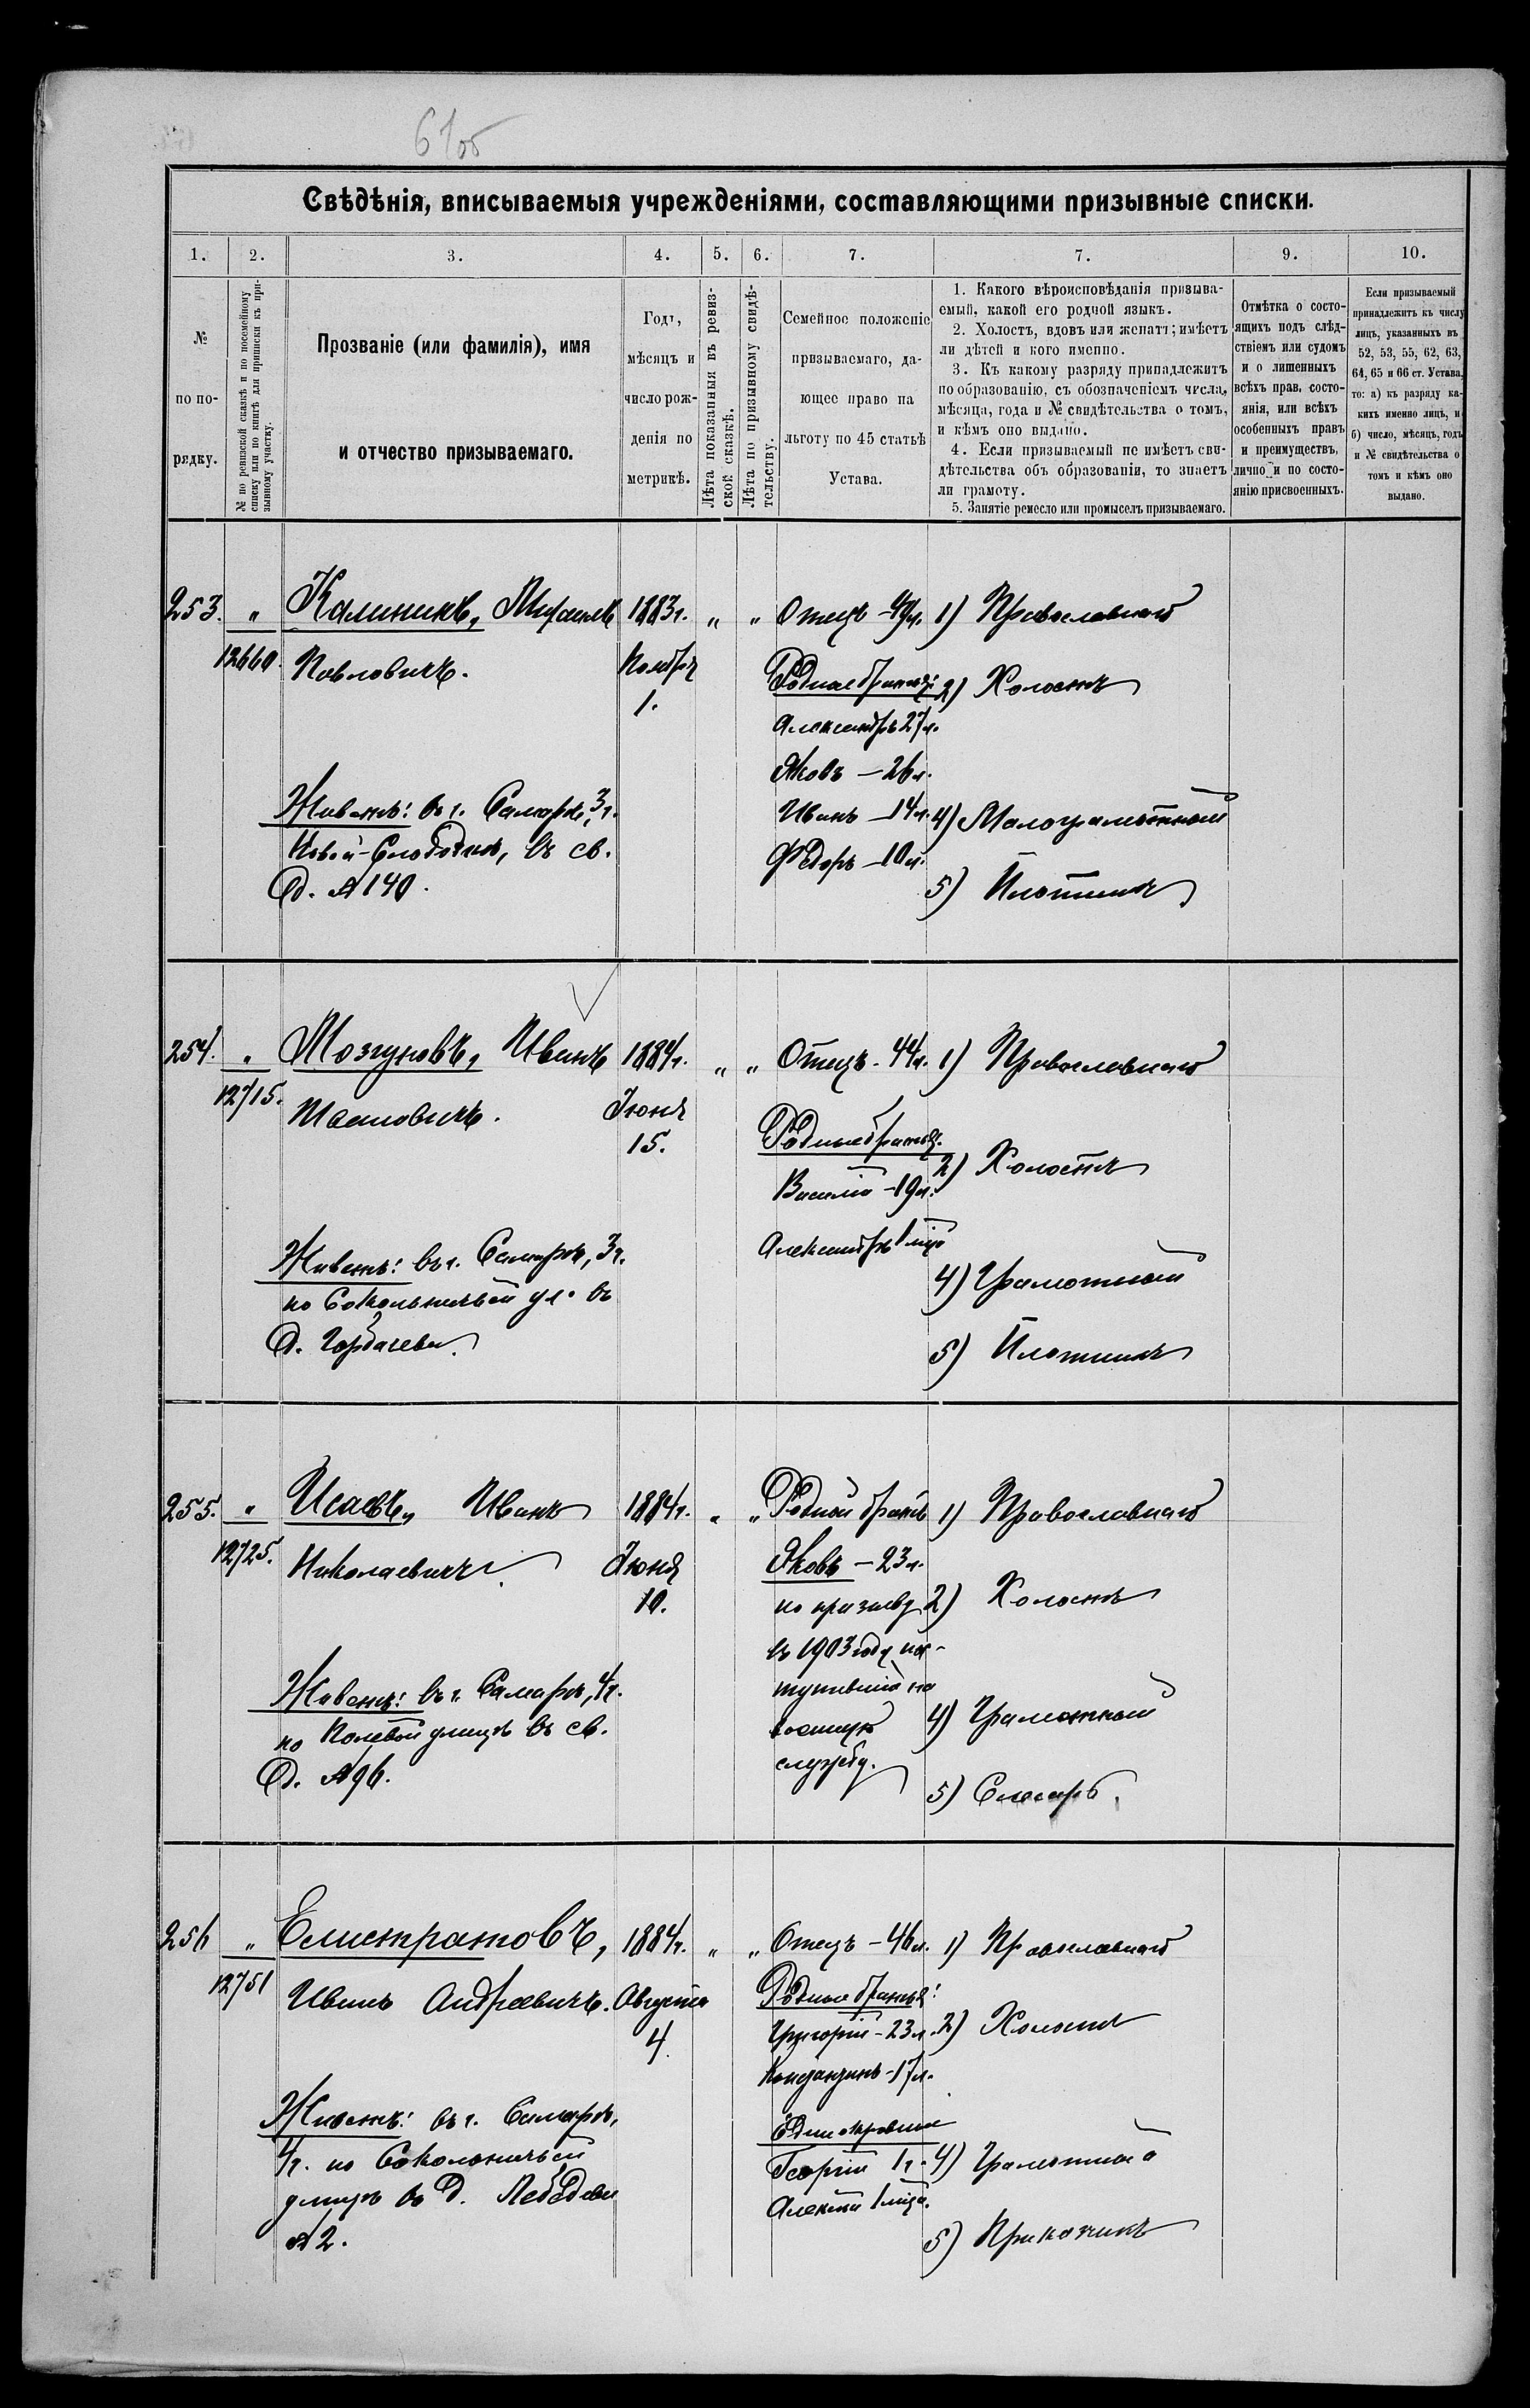 61об
Свѣдѣнія, вписываемыя учрежденіями, составляющими призывные списки.
1. 2. 3. 4. 5. 6. 7. 7. 9. 10.
№ по порядку.
№ по ревизской сказкѣ и по посемейному
списку или по книгѣ для приписки къ при-
зывному участку.
Прозваніе (или фамилія), имя
и отчество призываемаго.
Годъ,
мѣсяцъ и
число рож-
денія по
метрикѣ.
Лѣта показанныя въ ревиз-
ской сказкѣ.
Лѣта по призывному свидѣ-
тельству.
Семейное положеніе
призываемаго, да-
ющее право на
льготу по 45 статьѣ
Устава.
1. Какого вѣроисповѣданія призыва-
емый, какой его родной языкъ.
2. Холостъ, вдовъ или женатъ; имѣетъ
ли дѣтей и кого именно.
3. Къ какому разряду принадлежитъ
по образованію, съ обозначеніемъ числа,
мѣсяца, года и № свидѣтельства о томъ,
и кѣмъ оно выдано.
4. Если призываемый не имѣетъ сви-
дѣтельства объ образованіи, то знаетъ
ли грамоту.
5. Занятіе ремесло или промыселъ призываемаго.
Отмѣтка о состо-
ящихъ подъ слѣд-
ствіемъ или судомъ
и о лишенныхъ
всѣхъ правъ, состо-
янія, или всѣхъ
особенныхъ правъ
и преимуществъ,
лично и по состо-
янію присвоенныхъ.
Если призываемый
принадлежитъ къ числу
лицъ, указанныхъ въ
52, 53, 55, 62, 63,
64, 65 и 66 ст. Устава,
то: а) къ разряду ка-
кихъ именно лицъ, и
б) число, мѣсяцъ, годъ
и № свидѣтельства о
томъ и кѣмъ оно
выдано.
253. " Калининъ, Михаилъ 1883г. " " Отецъ - 49л. 1) Православнаго
12660. Павловичъ. Ноября Родные братья: 2) Холостъ
1. Александръ 27л.
Яковъ - 26л.
Живетъ: въ г. Самарѣ, 3ч. Иванъ - 14л. 4) Малограмотный
Новой-Слободкѣ, въ св. Ѳедоръ - 10л.
д. № 140. 5) Плотникъ
254. " Мозгуновъ, Иванъ 1884г. " " Отецъ - 44л. 1) Православнаго
12715. Июня Родные братья:
15. 2) Холостъ
Василій - 19л.
Живетъ: въ г. Самарѣ, 3ч. Александръ 1 мѣс
по Сокольничьей ул. въ 4) Грамотный
д. Горбачева. 5) Плотникъ
255. " Исаевъ, Иванъ 1884г. " " Родной братъ 1) Православнаго
12725. Николаевичъ. Июня Яковъ - 23л.
10. по призыву 2) Холостъ
въ 1903 году пос-
Живетъ: въ г. Самарѣ, 4ч. тупившій на
по Полевой улицѣ въ св. военную 4) Грамотный
д. № 96. службу.
5) Слесарь.
256 " Елистратовъ, 1884г. " " Отецъ - 46л. 1) Православнаго
12751 Иванъ Андреевичъ. Августа Родные братья:
4. Григорій - 23л. 2) Холостъ
- 17л.
Живетъ: въ г. Самарѣ, Единокровные
4ч. по Сокольничьей Георгій 1г. 4) Грамотный
улицѣ въ д. Лебедева Алексѣй 1 мѣся.
№ 2. 5) Приказчикъ